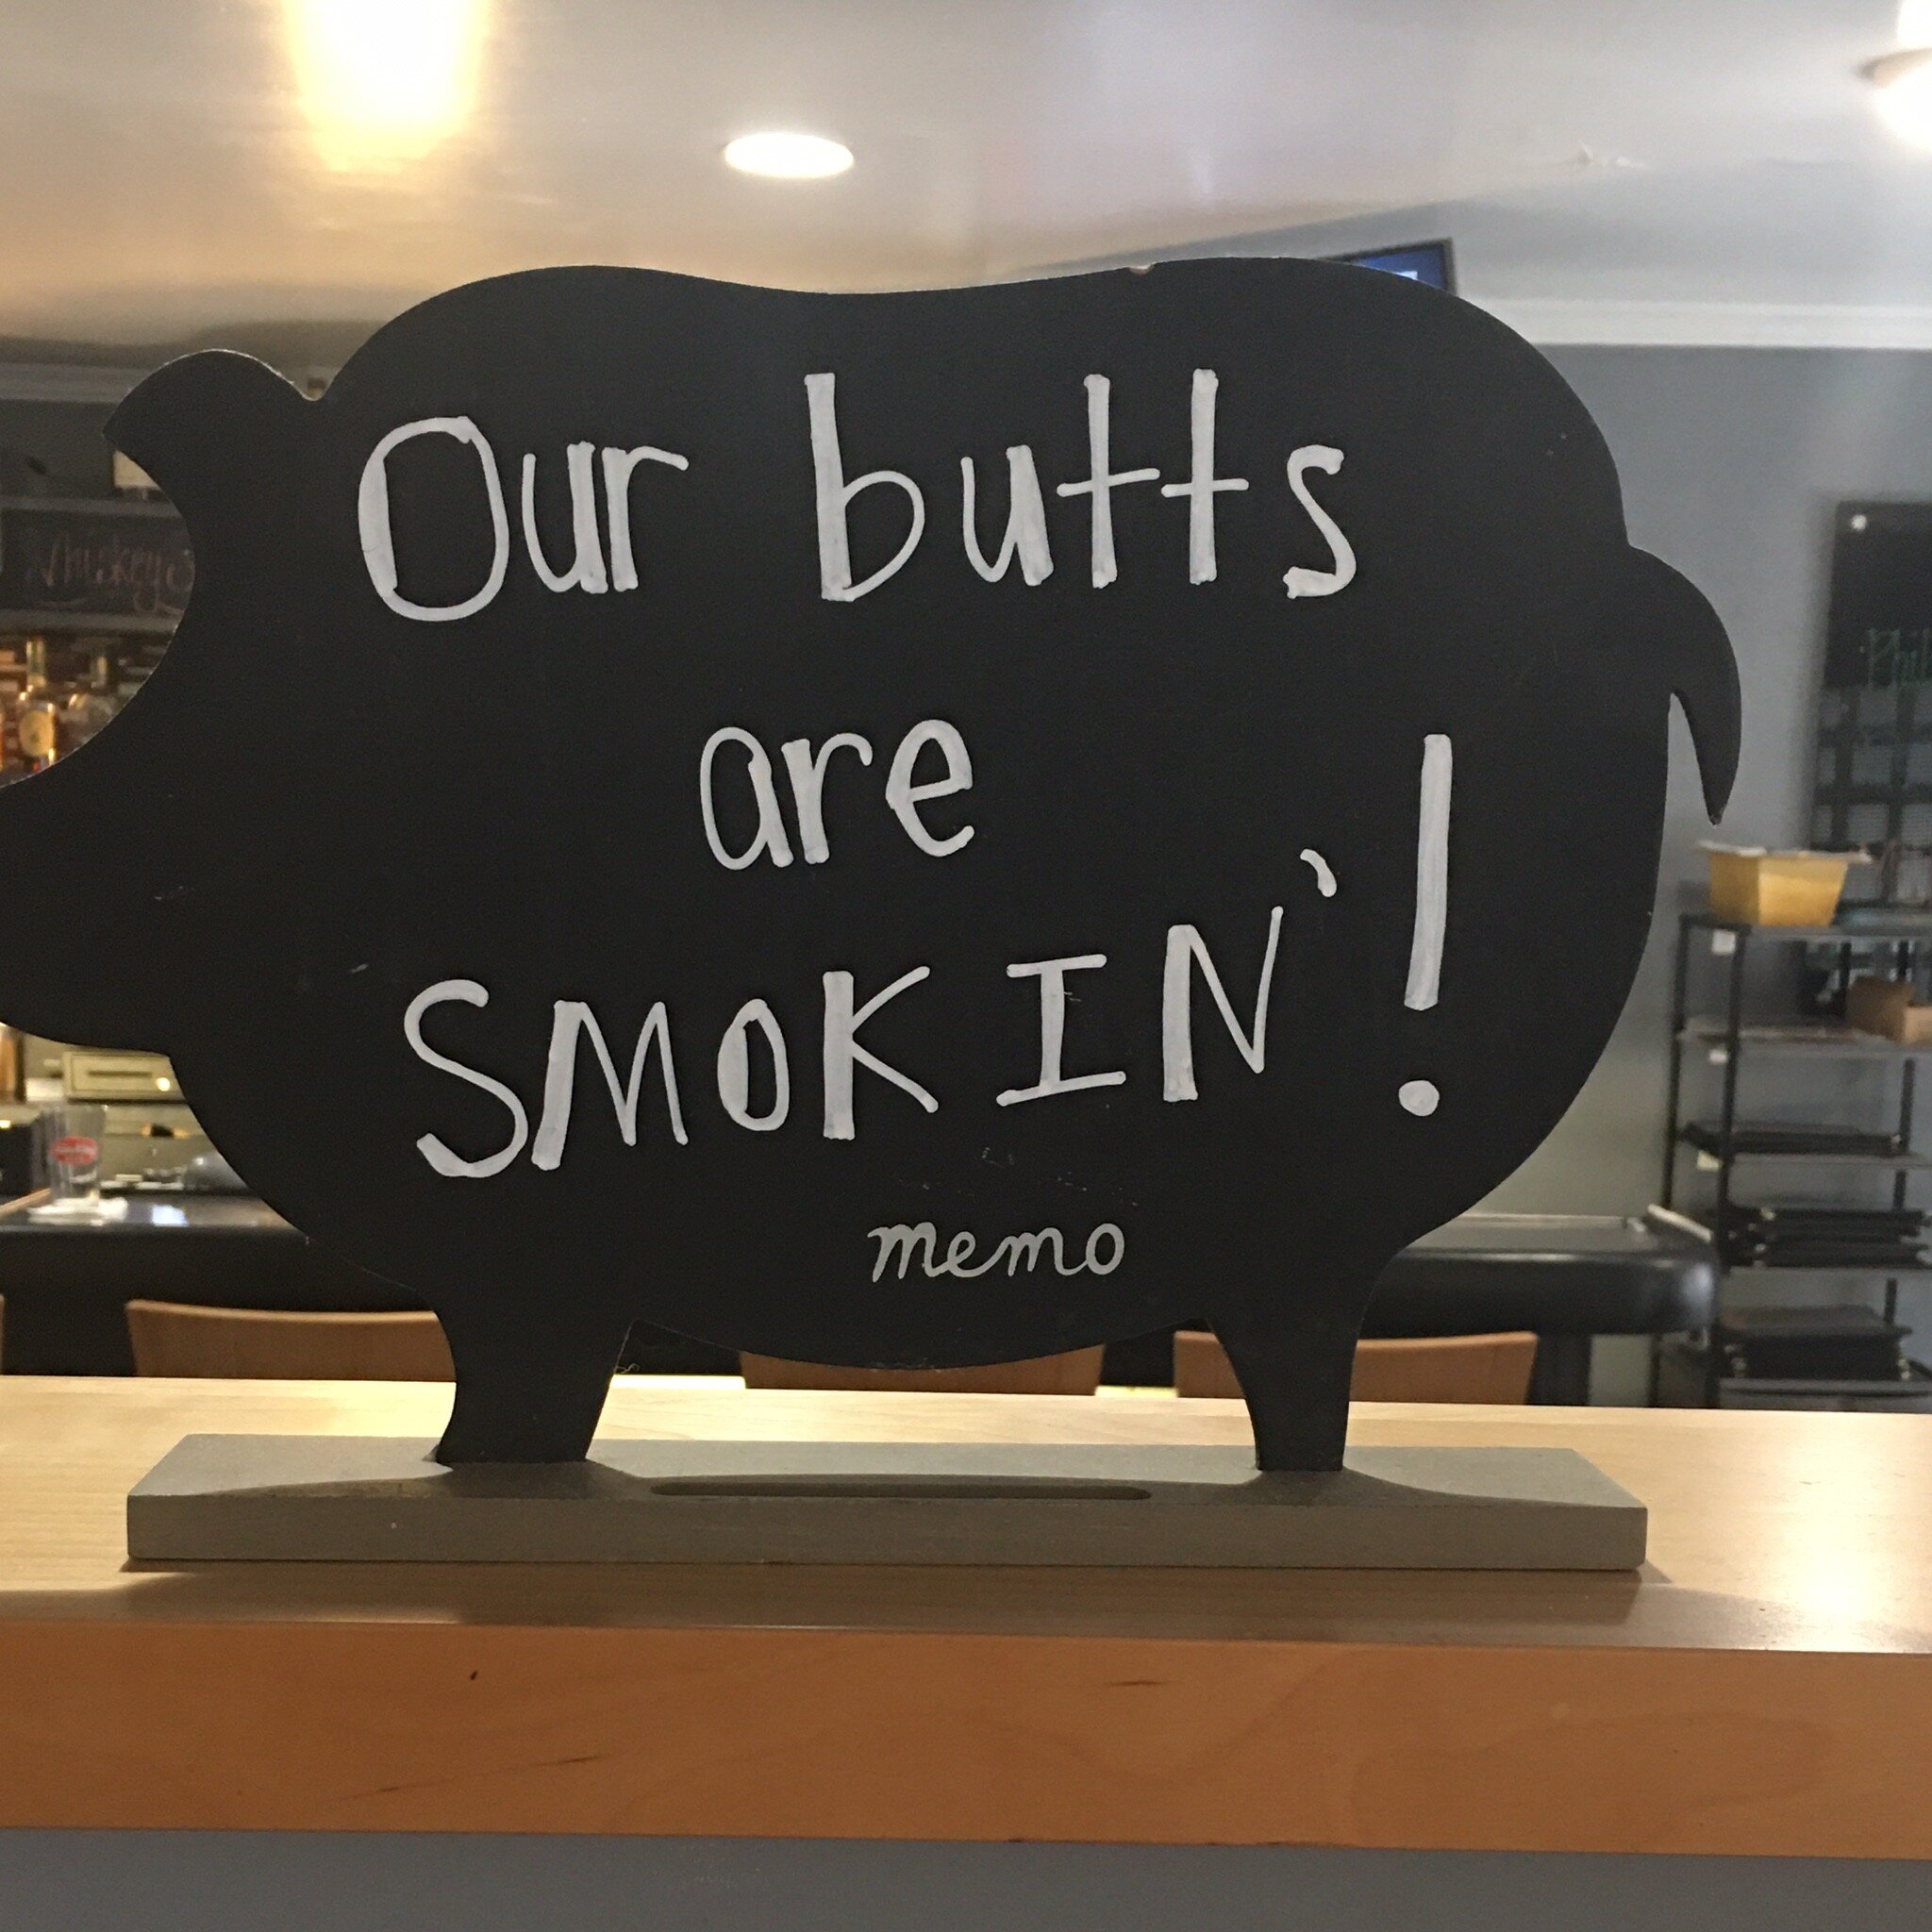 Our butts
are
SMOKIN'!
memo
Whiskey
Phil